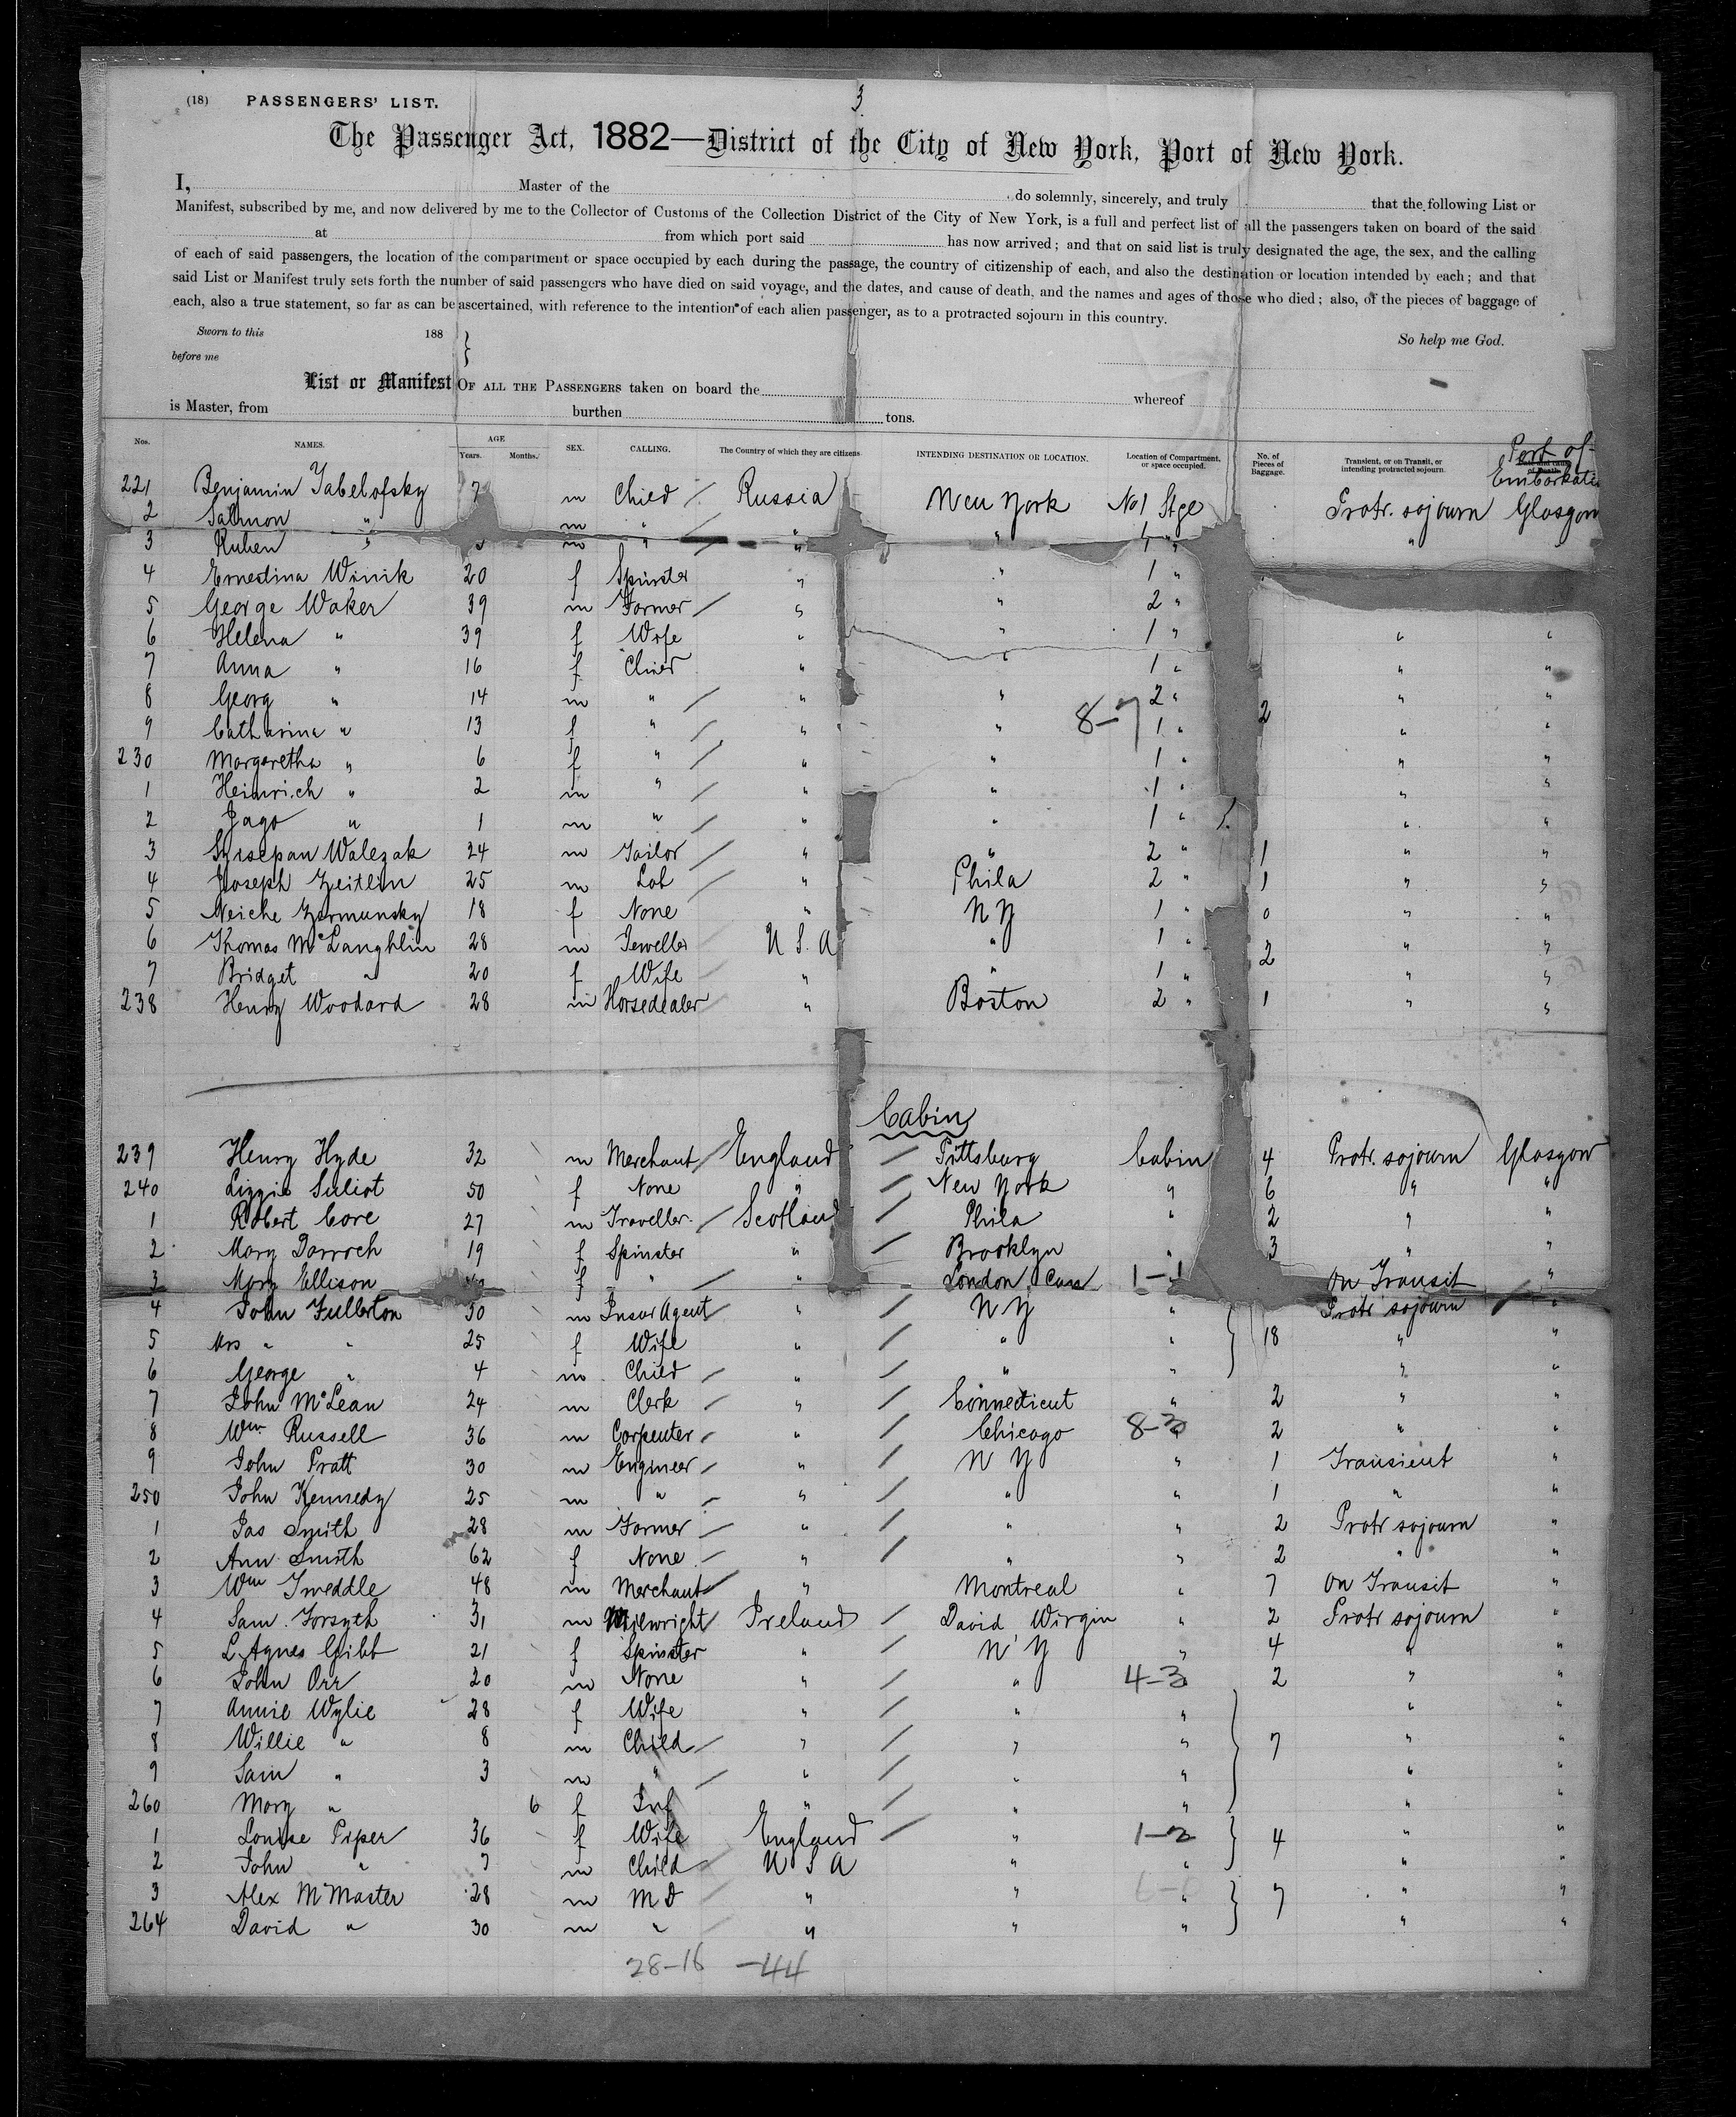 3
(18) PASSENGERS' LIST.
The Passenger Act, 1882—District of the City of New York, Port of New York.
I, Master of the do solemnly, sincerely, and truly that the following List or
Manifest, subscribed by me, and now delivered by me to the Collector of Customs of the Collection District of the City of New York, is a full and perfect list of all the passengers taken on board of the said
at from which port said has now arrived; and that on said list is truly designated the age, the sex, and the calling
of each of said passengers, the location of the compartment or space occupied by each during the passage, the country of citizenship of each, and also the destination or location intended by each; and that
said List or Manifest truly sets forth the number of said passengers who have died on said voyage, and the dates, and cause of death, and the names and ages of those who died; also, of the pieces of baggage of
each, also a true statement, so far as can be ascertained, with reference to the intention of each alien passenger, as to a protracted sojourn in this country.
Sworn to this 188 } So help me God.
before me
List or Manifest OF ALL THE PASSENGERS taken on board the whereof
is Master, from burthen tons.
Nos. NAMES. AGE Years. Months. SEX. CALLING. The Country of which they are citizens INTENDING DESTINATION OR LOCATION. Location of Compartment, or space occupied. No. of Pieces of Baggage. Transient, or on Transit, or intending protracted sojourn. Port of Embarkati
221 Benjamin Tabelofsky 7 m Child / Russia New York No 1 Stge Protr. sojourn Glasgow
2 Salmon " m " / " "
3 Ruben " m " / " " " " "
4 Ernestina Winik 20 f Spinster " " 1 "
5 George Waker 39 m Farmer / " " 2 "
6 Helena " 39 f Wife " " 1 " " "
7 Anna " 16 f Child " " 1 " " "
8 Georg " 14 m " / " " 2 " " "
9 Catharina " 13 f " / " " 8-7 1 " 2 " "
230 Margaretha " 6 f " / " " 1 " " "
1 Heinrich " 2 m " / " " 1 " " "
2 Jago " 1 m " / " " 1 " " "
3 Walezak 24 m Tailor / " " 2 " 1 " "
4 Joseph Zeitlin 25 m Lab / " Phila 2 " 1 " "
5 Neiche Zarmunsky 18 f None " N Y 1 " 0 " "
6 Thomas McLaughlin 28 m Jeweller U S. A " 1 " 2 " "
7 Bridget " 20 f Wife " " 1 " " "
238 Henry Woodard 28 m Horsedealer " Boston 2 " 1 " "
Cabin
239 Henry Hyde 32 m Merchant / England / Pittsburg Cabin 4 Protr. sojourn Glasgow
240 Lizzie Suliot 50 f None " / New York " 6 " "
1 Robert Core 27 m Traveller / Scotland / Phila " 2 " "
2 Mary Darroch 19 f Spinster " / Brooklyn " 3 " "
3 Mary Ellison f " / " London Can 1-1 On Transit "
4 John Fullerton 30 m Insur Agent / " / N Y " Protr sojourn "
5 Mrs " " 25 f Wife " / " " } 18 " "
6 George " 4 m Child / " / " " " "
7 John McLean 24 m Clerk / " / Connecticut " 2 " "
8 Wm Russell 36 m Carpenter / " / Chicago 8-3 2 " "
9 John Pratt 30 m Engineer / " / N Y " 1 Transient "
250 John Kennedy 25 m " / " / " " 1 " "
1 Jas Smith 28 m Farmer / " / " " 2 Protr sojourn "
2 Ann Smith 62 f None / " / " " 2 " "
3 Wm Tweddle 48 m Merchant / " Montreal " 7 On Transit "
4 Sam. Forsyth 31 m Millwright Ireland / David Wirgin " 2 Protr sojourn "
5 L. Agnes Gibb 21 f Spinster " / N Y " 4 " "
6 John Orr 20 m None " / " 4-3 2 " "
7 Annie Wylie 28 f Wife " / " " " "
8 Willie " 8 m Child / " / " " } 7 " "
9 Sam " 3 m " / " / " " " "
260 Mary " 6 f Inf " / " " " "
1 Louise Piper 36 f Wife England / " 1-2 } 4 " "
2 John " 7 m Child U S A " " " "
3 Alex McMaster 28 m M D " " " } 7 " "
264 David " 30 m " " " " " "
28-16 -44